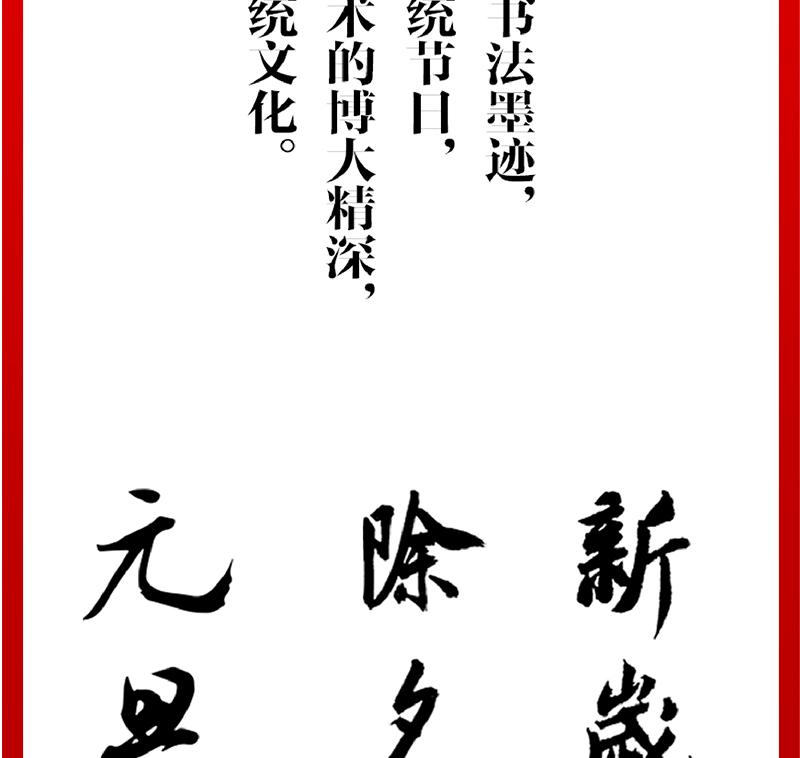 书法墨迹，
统节日，
术的博大精深，
统文化。
新歲
除夕
元旦